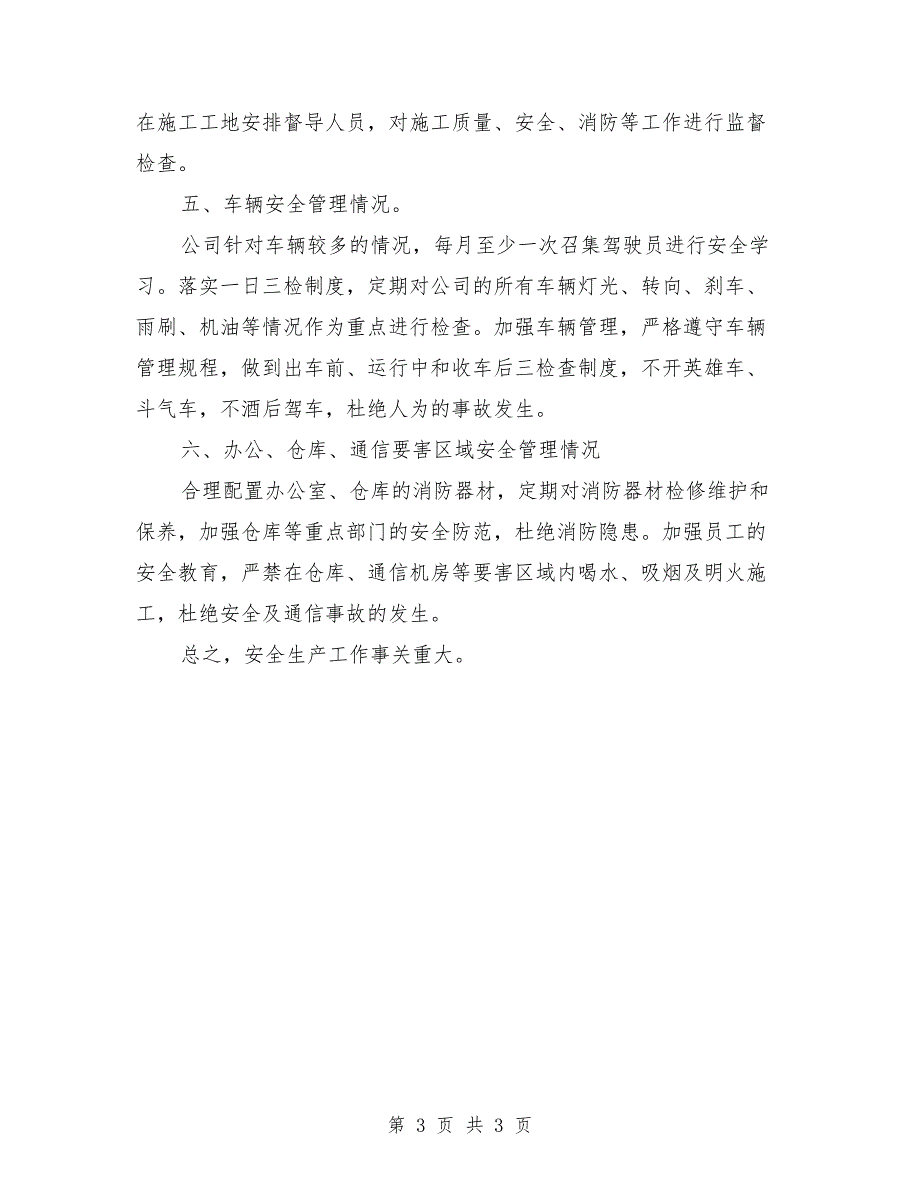 在施工工地安排督导人员，对施工质量、安全、消防等工作进行监督
检查。
五、车辆安全管理情况。
公司针对车辆较多的情况，每月至少一次召集驾驶员进行安全学
习。落实一日三检制度，定期对公司的所有车辆灯光、转向、刹车、
雨刷、机油等情况作为重点进行检查。加强车辆管理，严格遵守车辆
管理规程，做到出车前、运行中和收车后三检查制度，不开英雄车、
斗气车，不酒后驾车，杜绝人为的事故发生。
六、办公、仓库、通信要害区域安全管理情况
合理配置办公室、仓库的消防器材，定期对消防器材检修维护和
保养，加强仓库等重点部门的安全防范，杜绝消防隐患。加强员工的
安全教育，严禁在仓库、通信机房等要害区域内喝水、吸烟及明火施
工，杜绝安全及通信事故的发生。
总之，安全生产工作事关重大。
第 3 页 共 3 页